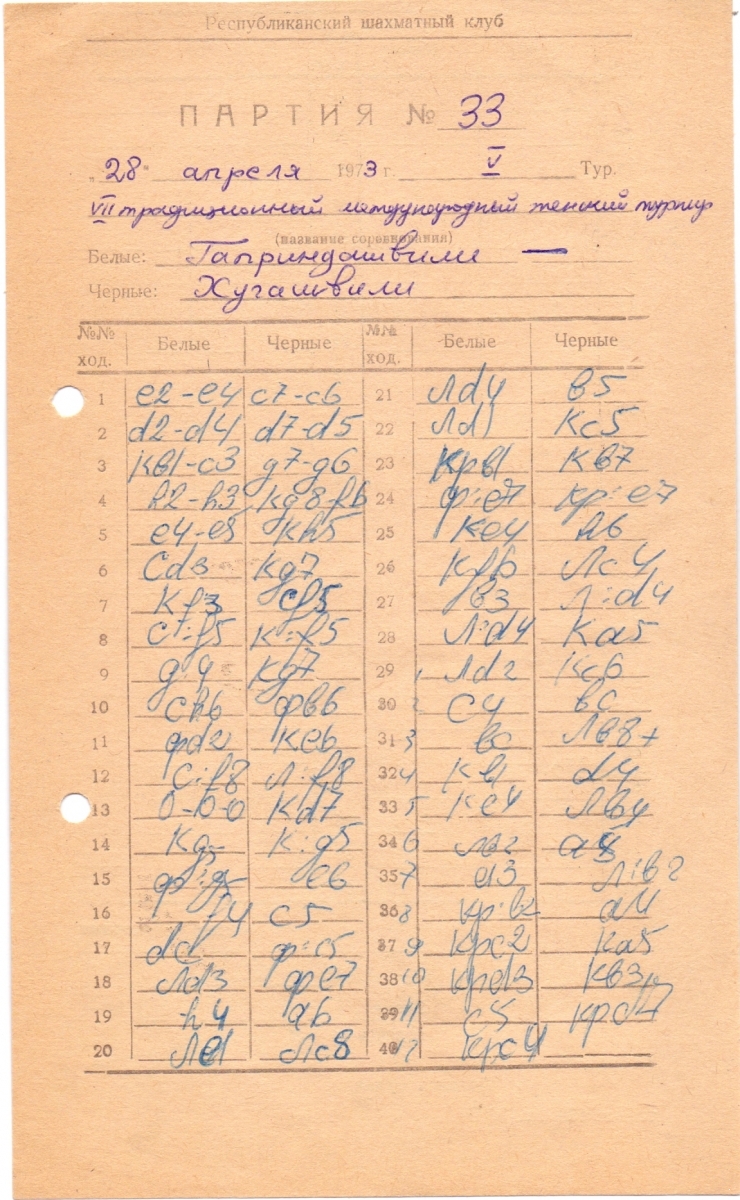 Республиканский шахматный клуб
ПАРТИЯ № 33
„28" апреля 1973 г. V Тур.
VII традиционный международный женский турнир
(название соревнования)
Белые: Гаприндашвили —
Черные: Хугашвили
№№ ход. Белые Черные №№ ход. Белые Черные
1 e2-e4 c7-c6 21 Лd4 в5
2 d2-d4 d7-d5 22 Лd1 Кc5
3 Кв1-c3 g7-g6 23 Крв1 Кв7
4 h2-h3 Кg8-f6 24 Ф:e7 Кр:e7
5 e4-e5 Кh5 25 Кe4 h6
6 Сd3 Кg7 26 Кf6 Лc4
7 Кf3 Сf5 27 в3 Л:d4
8 С:f5 К:f5 28 Л:d4 Кa5
9 g4 Кg7 29 Лd2 Кc6
10 Сh6 Фв6 30 c4 вc
11 Фd2 Кe6 31 3 вc Лв8+
12 С:f8 Л:f8 32 4 d4
13 0-0-0 Кd7 33 5 Кe4 Лв4
14 Кg5 К:g5 34 6 Лв2 a5
15 Ф:g5 e6 35 7 a3 Л:в2
16 f4 c5 36 8 Кр:в2 a4
17 dc Ф:c5 37 9 Крc2 Кa5
18 Лd3 Фe7 38 10 Крd3 Кв3
19 h4 a6 39 11 c5 Крd7
20 Лe1 Лc8 40 12 Крc4